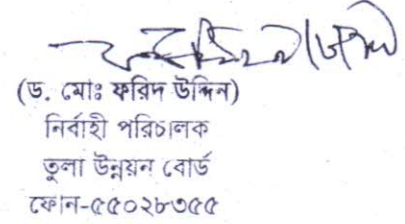 (ড. মোঃ ফরিদ উদ্দিন)
নির্বাহী পরিচালক
তুলা উন্নয়ন বোর্ড
ফোন-৫৫০২৮৩৫৫